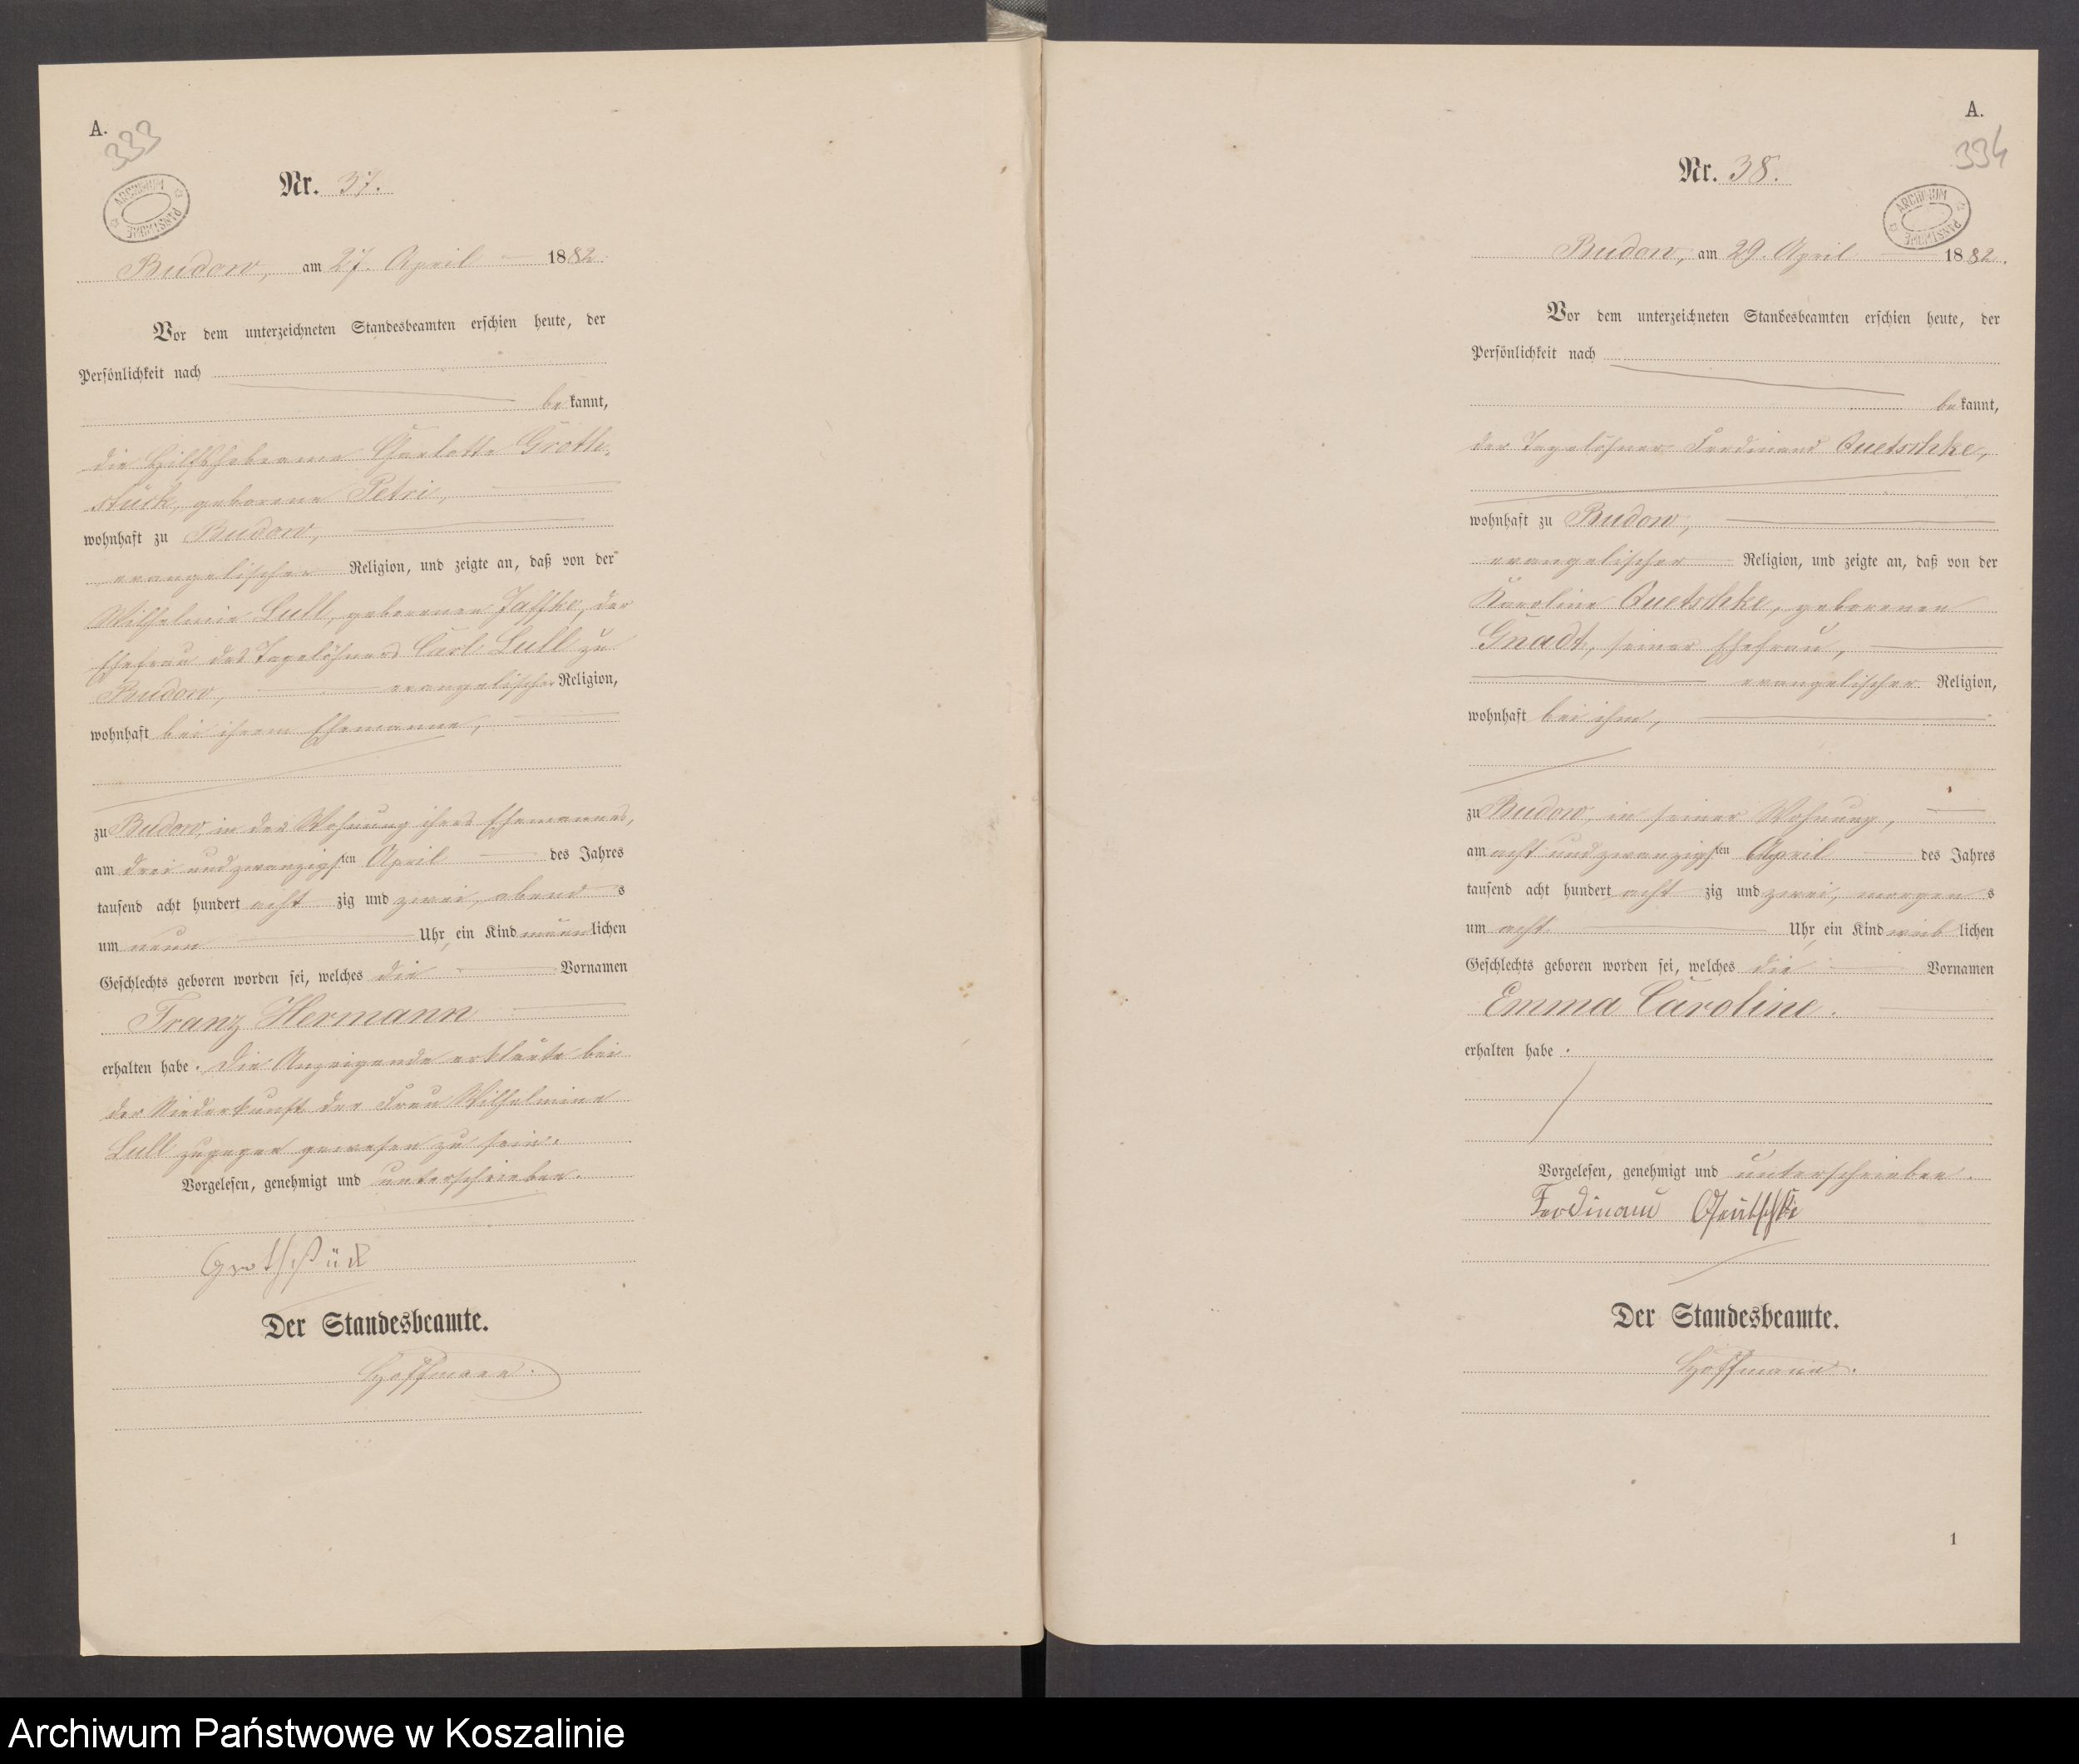 A.
333
ARCHIWUM PAŃSTWOWE
Nr. 37.
Budow, am 27. April 1882.
Vor dem unterzeichneten Standesbeamten erschien heute, der
Persönlichkeit nach
bekannt,
die Hilfshebamme Charlotte Groth-
stück, geborene Petri,
wohnhaft zu Budow,
evangelischer Religion, und zeigte an, daß von der
Wilhelmine Lull, geborenen Jaffke, der
Ehefrau des Tagelöhners Carl Lull zu
Budow, evangelischer Religion,
wohnhaft bei ihrem Ehemanne,
zu Budow, in der Wohnung ihres Ehemannes,
am drei und zwanzigsten April des Jahres
tausend acht hundert achtzig und zwei, abends
um neun Uhr, ein Kind männlichen
Geschlechts geboren worden sei, welches die Vornamen
Franz Hermann
erhalten habe. Die Anzeigende erklärte bei
der Niederkunft der Frau Wilhelmine
Lull zugegen gewesen zu sein.
Vorgelesen, genehmigt und unterschrieben.
Grothstück
Der Standesbeamte.
Hoffmann.
A.
334
ARCHIWUM PAŃSTWOWE
Nr. 38.
Budow, am 29. April 1882.
Vor dem unterzeichneten Standesbeamten erschien heute, der
Persönlichkeit nach
bekannt,
der Tagelöhner Ferdinand Quetschke,
wohnhaft zu Budow,
evangelischer Religion, und zeigte an, daß von der
Karoline Quetschke, geborenen
Gnadt, seiner Ehefrau,
evangelischer Religion,
wohnhaft bei ihm,
zu Budow, in seiner Wohnung,
am acht und zwanzigsten April des Jahres
tausend acht hundert achtzig und zwei, morgens
um acht Uhr, ein Kind weiblichen
Geschlechts geboren worden sei, welches die Vornamen
Emma Caroline.
erhalten habe.
Vorgelesen, genehmigt und unterschrieben.
Ferdinand
Der Standesbeamte.
Hoffmann.
1
Archiwum Państwowe w Koszalinie